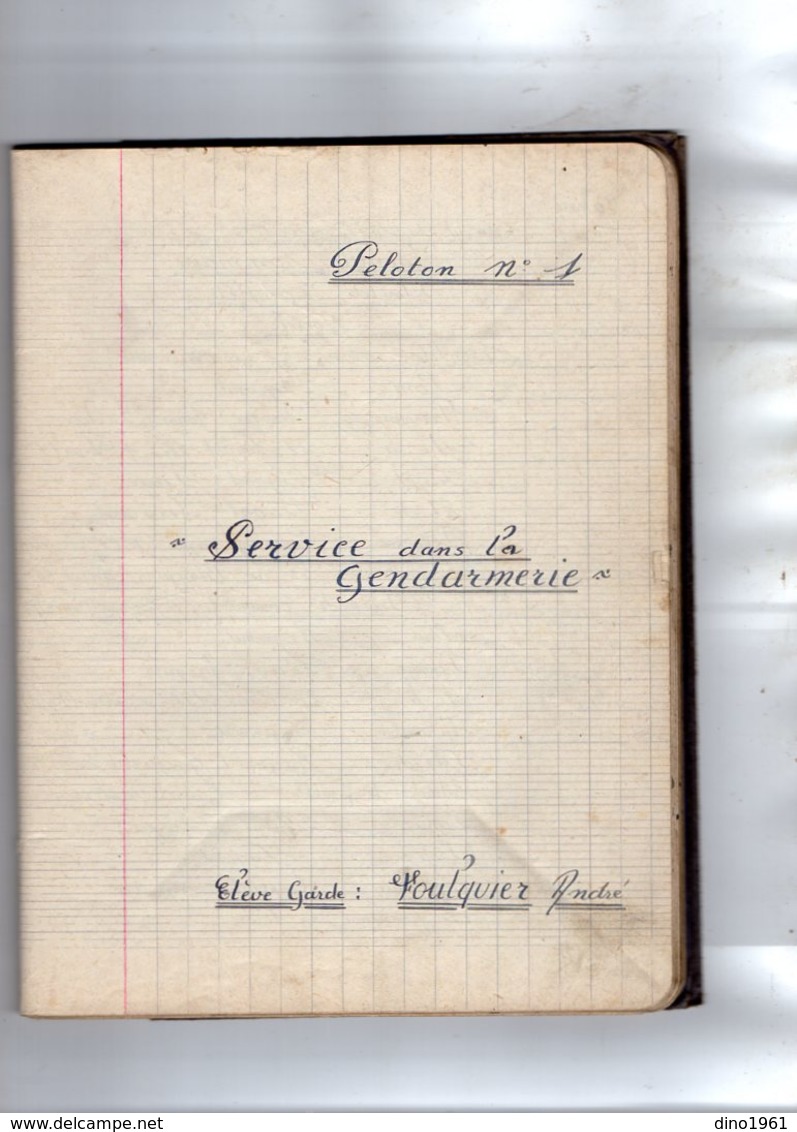 Peloton n° 1
" Service dans la
Gendarmerie "
Elève Garde : Foulquier André
delcampe.net
dino1961